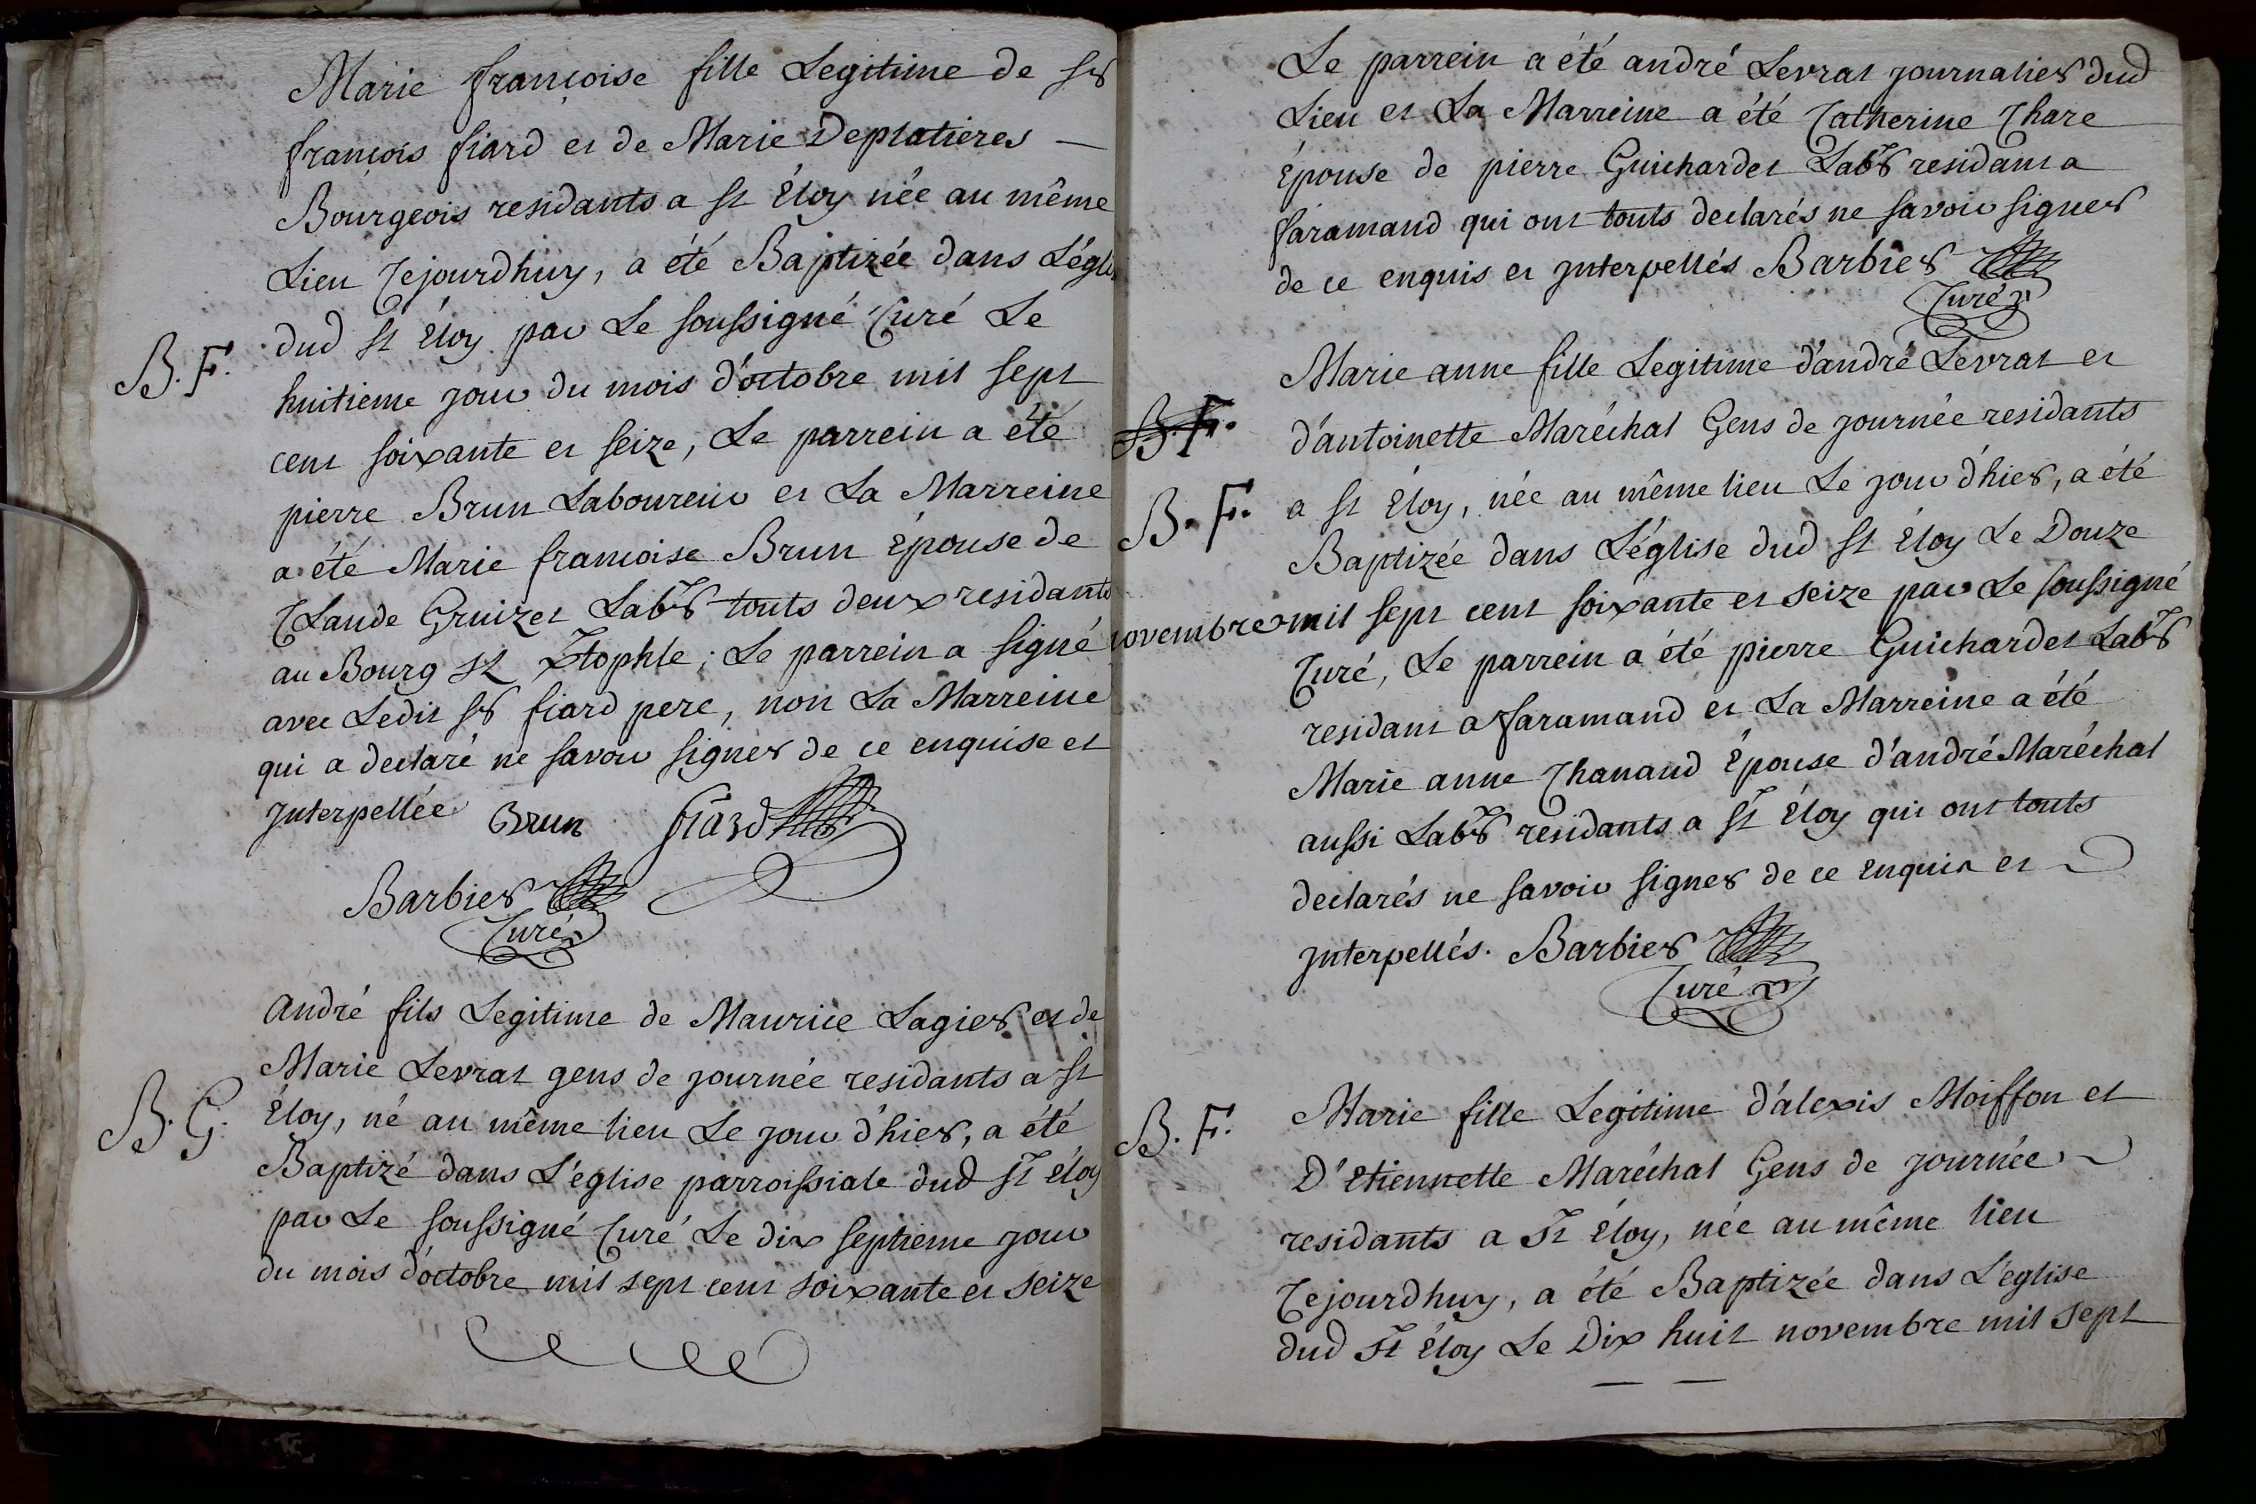 Marie françoise fille Legitime de sr
françois fiard et de Marie Deplatieres —
Bourgeois residants a st Éloy née au même
Lieu Cejourdhuy, a été Baptizée dans L'égli
B. F.
dud st Éloy par Le soussigné Curé Le
huitieme jour du mois d'octobre mil sept
cent soixante et seize, Le parrein a été
pierre Brun Laboureur et La Marreine
a été Marie françoise Brun Épouse de
Claude Gruizet Labr touts deux residants
au Bourg st Xtophle; Le parrein a signé
avec Ledit sr fiard pere, non La Marreine
qui a declaré ne savoir signer de ce enquise et
jnterpellée Brun fiard
Barbier
Curé
André fils Legitime de Maurice Lagier et de
Marie Levrat gens de journée residants a st
B. G.
Éloy, né au même lieu Le jour d'hier, a été
Baptizé dans L'église parroissiale dud st Éloy
par Le soussigné Curé Le dix septieme jour
du mois d'octobre mil sept cent soixante et seize
Le parrein a été andré Levrat journalier dud
Lieu et La Marreine a été Catherine Chare
Épouse de pierre Guichardet Labr residant a
faramand qui ont touts declarés ne savoir signer
de ce enquis et jnterpellés Barbier
Curé
Marie anne fille Legitime d'andré Levrat et
B. F.
d'antoinette Maréchal Gens de journée residants
B. F.
a st Éloy, née au même lieu Le jour d'hier, a été
Baptizée dans L'église dud st Éloy Le Douze
novembre mil sept cent soixante et seize par Le soussigné
Curé, Le parrein a été pierre Guichardet Labr
residant a faramand et La Marreine a été
Marie anne Chanaud Épouse d'andré Maréchal
aussi Labr residants a st Éloy qui ont touts
declarés ne savoir signer de ce enquis et
jnterpellés. Barbier
Curé
B. F.
Marie fille Legitime d'alexis Moiffon et
D'Etiennette Maréchal Gens de journée
residants a st Éloy, née au même lieu
Cejourdhuy, a été Baptizée dans L'eglise
dud st Éloy Le Dix huit novembre mil sept